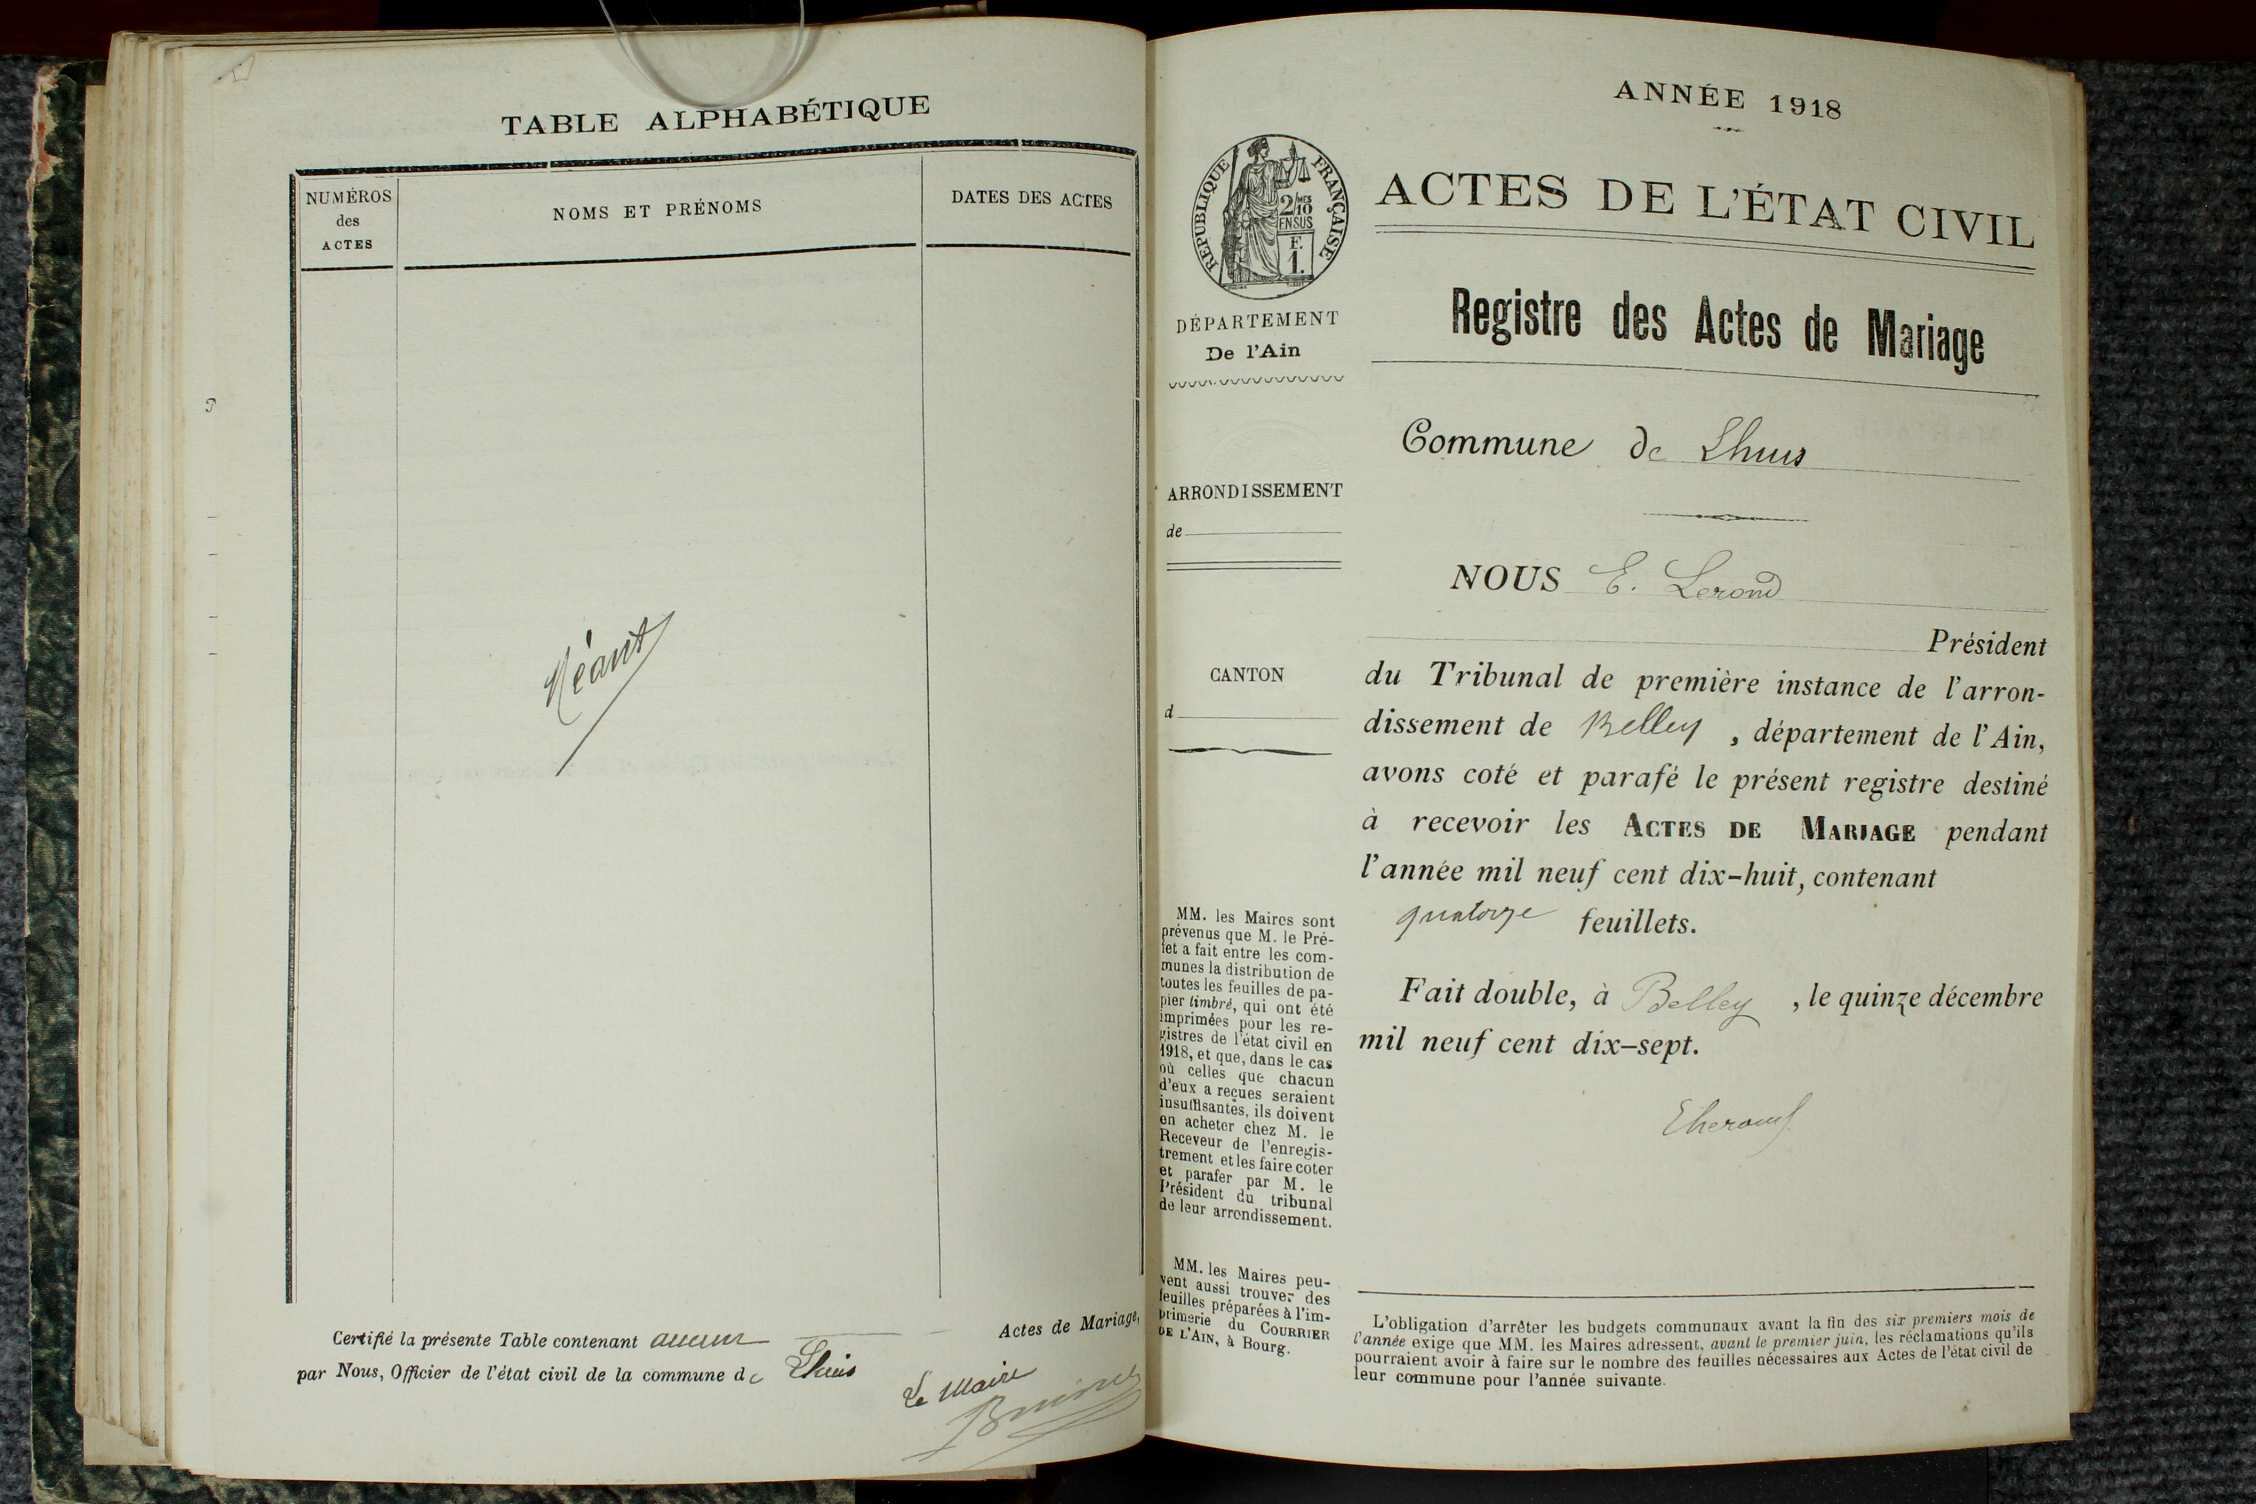 TABLE ALPHABÉTIQUE
NUMÉROS
des
ACTES
NOMS ET PRÉNOMS
DATES DES ACTES
Néant
Certifié la présente Table contenant aucun Actes de Mariage,
par Nous, Officier de l'état civil de la commune de Lhuis
Le Maire
ANNÉE 1918
RÉPUBLIQUE FRANÇAISE
2/10
EN SUS
F.
1.
DÉPARTEMENT
De l'Ain
ARRONDISSEMENT
de
CANTON
d
MM. les Maires sont
prévenus que M. le Pré-
fet a fait entre les com-
munes la distribution de
toutes les feuilles de pa-
pier timbré, qui ont été
imprimées pour les re-
gistres de l'état civil en
1918, et que, dans le cas
où celles que chacun
d'eux a reçues seraient
insuffisantes, ils doivent
en acheter chez M. le
Receveur de l'enregis-
trement et les faire coter
et parafer par M. le
Président du tribunal
de leur arrondissement.
MM. les Maires peu-
vent aussi trouver des
feuilles préparées à l'im-
primerie du COURRIER
DE L'AIN, à Bourg.
ACTES DE L'ÉTAT CIVIL
Registre des Actes de Mariage
Commune de Lhuis
NOUS E. Lerond
Président
du Tribunal de première instance de l'arron-
dissement de Belley, département de l'Ain,
avons coté et parafé le présent registre destiné
à recevoir les ACTES DE MARIAGE pendant
l'année mil neuf cent dix-huit, contenant
quatorze feuillets.
Fait double, à Belley, le quinze décembre
mil neuf cent dix-sept.
L'obligation d'arrêter les budgets communaux avant la fin des six premiers mois de
l'année exige que MM. les Maires adressent, avant le premier juin, les réclamations qu'ils
pourraient avoir à faire sur le nombre des feuilles nécessaires aux Actes de l'état civil de
leur commune pour l'année suivante.